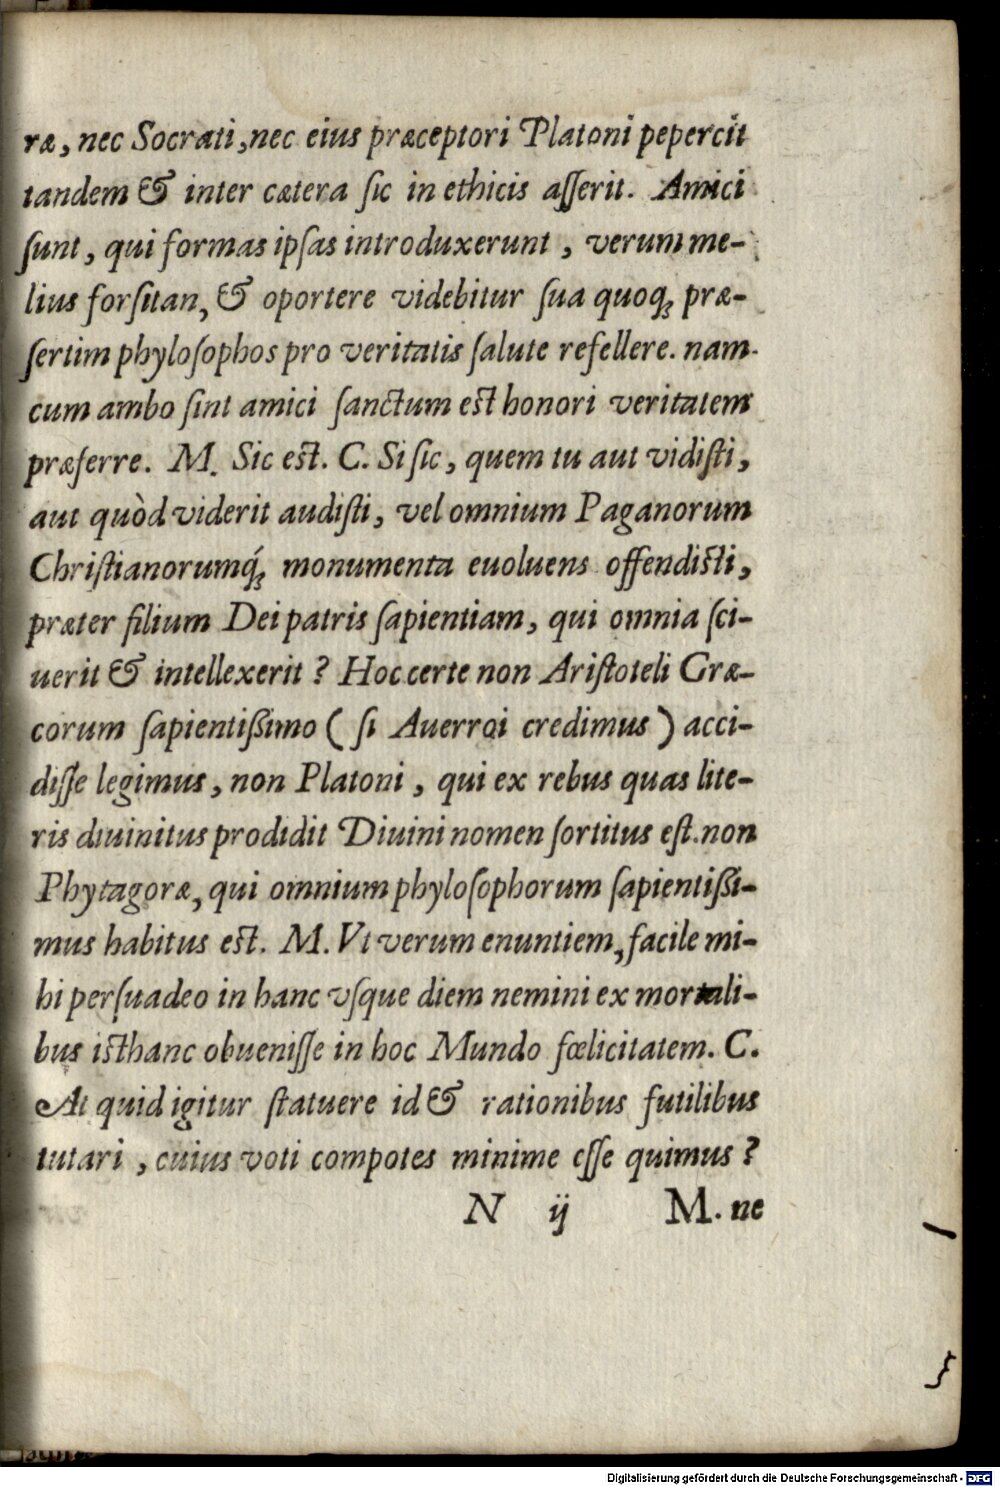 ræ, nec Socrati, nec eius præceptori Platoni pepercit
tandem & inter cætera ſic in ethicis aſſerit. Amici
ſunt, qui formas ipſas introduxerunt, verum me-
lius forſitan, & oportere videbitur ſua quoq́ præ-
ſertim phyloſophos pro veritatis ſalute refellere. nam
cum ambo ſint amici ſanctum est honori veritatem
præferre. M. Sic est. C. Si ſic, quem tu aut vidiſti,
aut quòd viderit audiſti, vel omnium Paganorum
Chriſtianorumq́ monumenta euoluens offendisti,
præter filium Dei patris ſapientiam, qui omnia ſci-
uerit & intellexerit? Hoc certe non Ariſtoteli Græ-
corum ſapientißimo (ſi Auerroi credimus) acci-
diſſe legimus, non Platoni, qui ex rebus quas lite-
ris diuinitus prodidit Diuini nomen ſortitus eſt. non
Phytagoræ, qui omnium phyloſophorum ſapientißi-
mus habitus est. M. Vt verum enuntiem, facile mi-
hi perſuadeo in hanc vſque diem nemini ex mortali-
bus isthanc obueniſſe in hoc Mundo fœlicitatem. C.
At quid igitur ſtatuere id & rationibus futilibus
tutari, cuius voti compotes minime eſſe quimus?
N ij M. ne
Digitalisierung gefördert durch die Deutsche Forschungsgemeinschaft - DFG